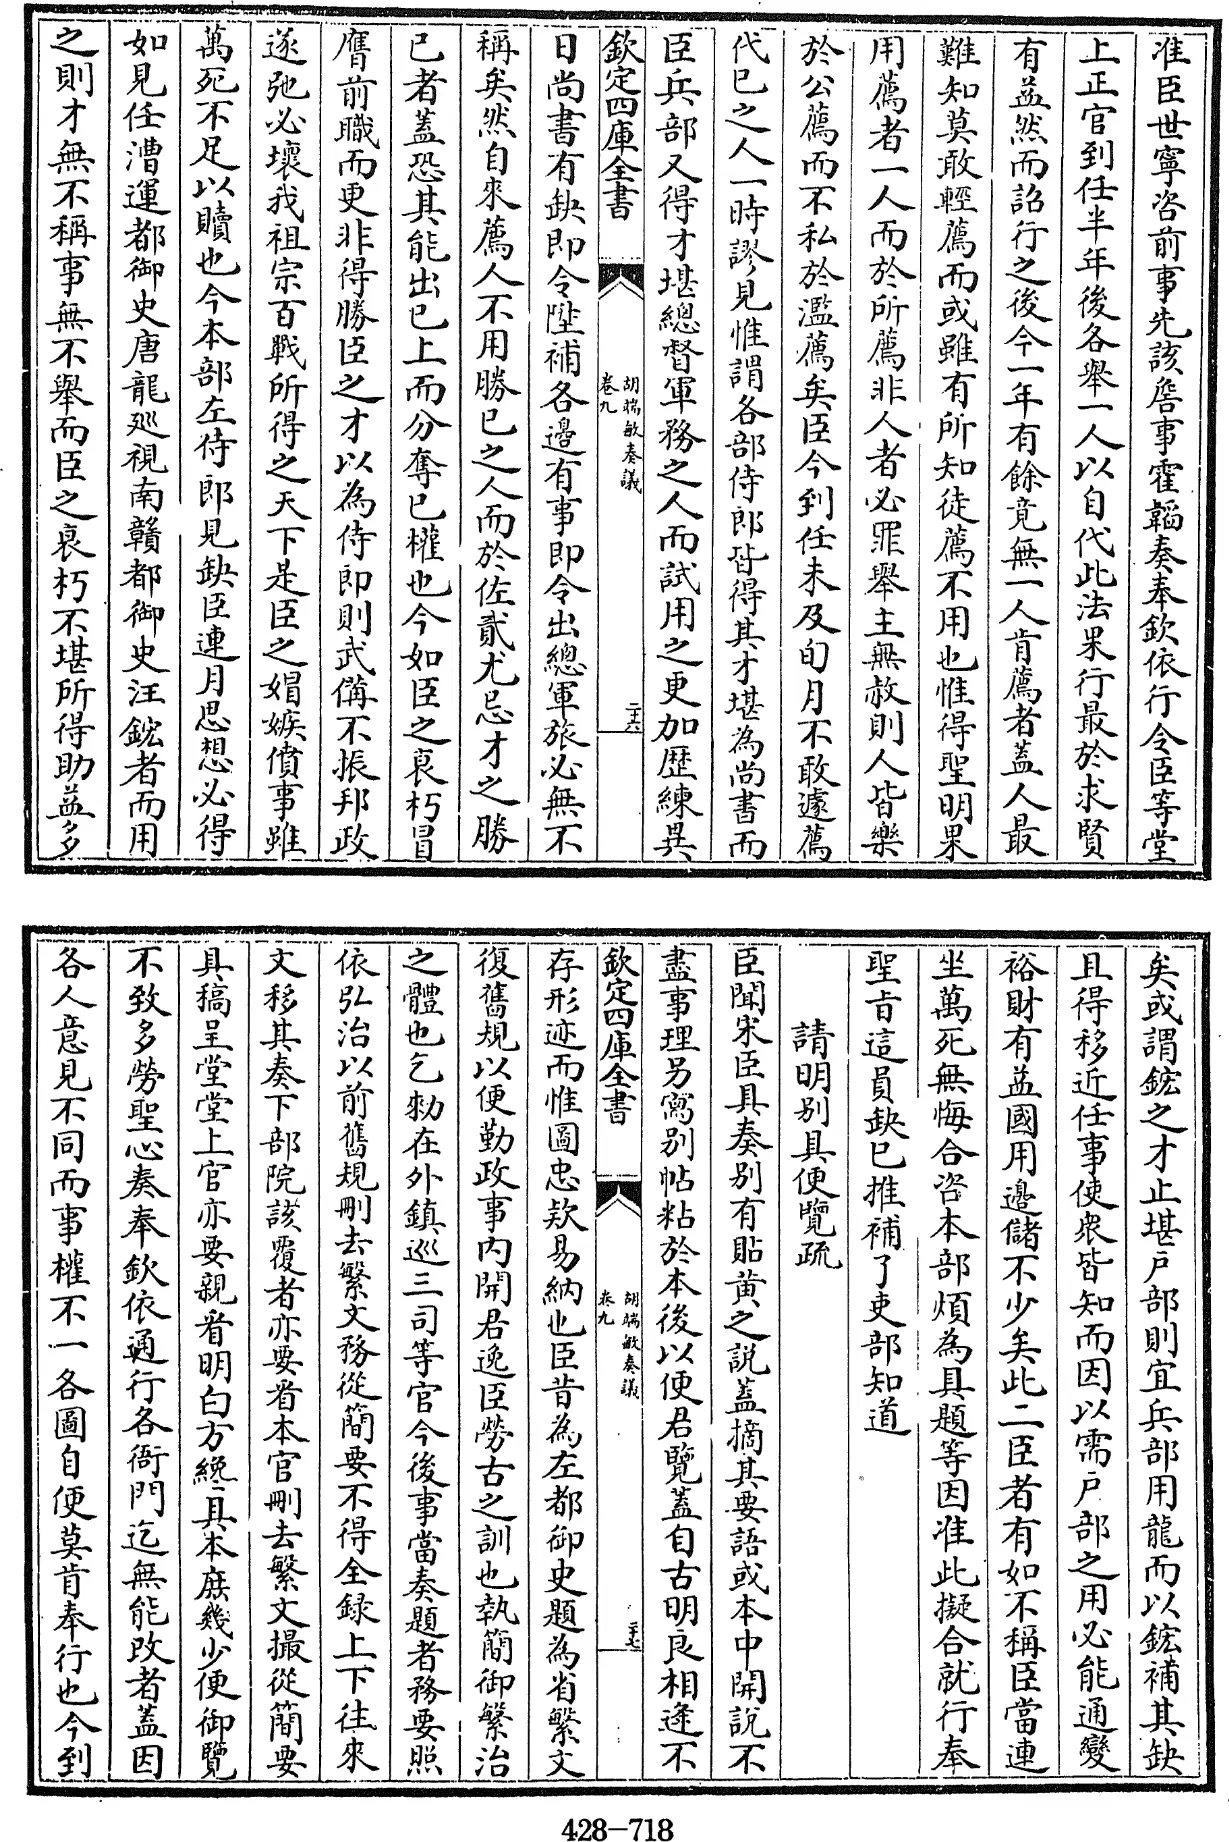 准臣世寧咨前事先該詹事霍韜奏奉欽依行令臣等堂
上正官到任半年後各舉一人以自代此法果行最於求賢
有益然而詔行之後今一年有餘竟無一人肯薦者蓋人最
難知莫敢輕薦而或雖有所知徒薦不用也惟得聖明果
用薦者一人而於所薦非人者必罪舉主無赦則人皆樂
於公薦而不私於濫薦矣臣今到任未及旬月不敢遽薦
代已之人一時謬見惟謂各部侍郎皆得其才堪為尚書而
臣兵部又得才堪總督軍務之人而試用之更加歴練異
欽定四庫全書
胡端敏奏議
卷九
二十六
日尚書有缺即令陞補各邊有事即令出總軍旅必無不
稱矣然自來薦人不用勝已之人而於佐貳尤忌才之勝
已者蓋恐其能出已上而分奪已權也今如臣之衰朽冒
膺前職而更非得勝臣之才以為侍郎則武備不振邦政
遂弛必壞我祖宗百戰所得之天下是臣之媢嫉僨事雖
萬死不足以贖也今本部左侍郎見缺臣連月思想必得
如見任漕運都御史唐龍廵視南贛都御史汪鋐者而用
之則才無不稱事無不舉而臣之衰朽不堪所得助益多
矣或謂鋐之才止堪户部則宜兵部用龍而以鋐補其缺
且得移近任事使衆皆知而因以需户部之用必能通變
裕財有益國用邊儲不少矣此二臣者有如不稱臣當連
坐萬死無悔合咨本部煩為具題等因准此擬合就行奉
聖㫖這員缺已推補了吏部知道
請明别具便覽疏
臣聞宋臣具奏别有貼黄之說蓋摘其要語或本中開說不
盡事理另寫别帖粘於本後以便君覽蓋自古明良相逢不
欽定四庫全書
胡端敏奏議
卷九
二十七
存形迹而惟圖忠欵易納也臣昔為左都御史題為省繁文
復舊規以便勤政事内開君逸臣勞古之訓也執簡御繁治
之體也乞勑在外鎮巡三司等官今後事當奏題者務要照
依弘治以前舊規刪去繁文務從簡要不得全録上下往來
文移其奏下部院該覆者亦要看本官刪去繁文撮從簡要
具稿呈堂堂上官亦要親看明白方纔具本庶幾少便御覽
不致多勞聖心奏奉欽依通行各衙門迄無能改者蓋因
各人意見不同而事權不一各圖自便莫肯奉行也今到
428-718